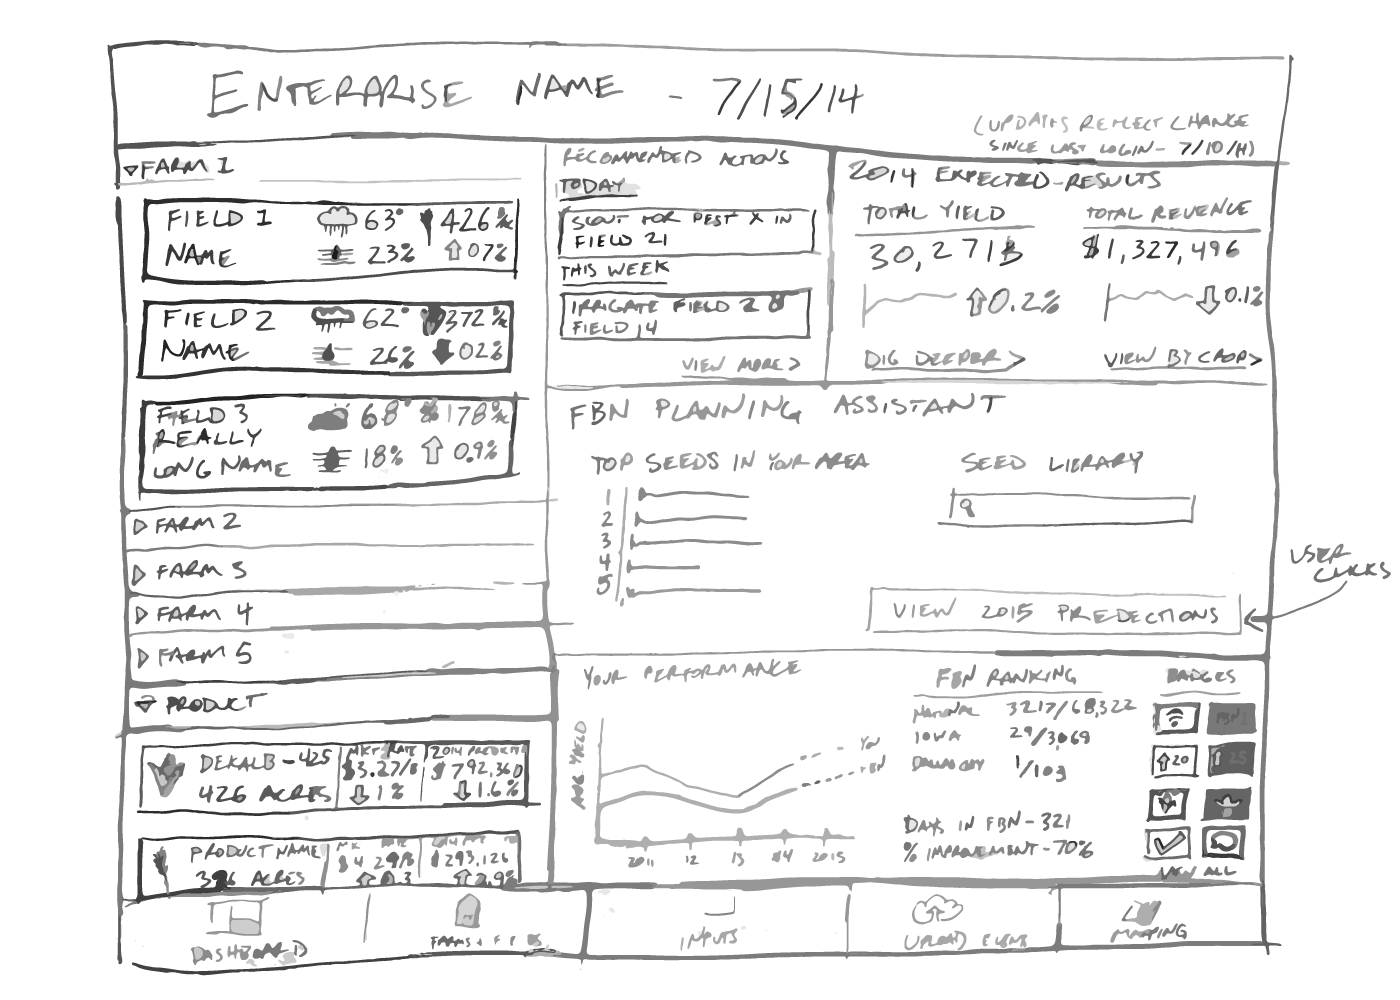 ENTERARISE NAME - 7/15/14
(UPDATES REFLECT CHANGE
SINCE LAST LOGIN - 7/10/14)
FARM 1
FIELD 1
NAME
63°
426
23%
07%
FIELD 2
NAME
62°
372
26%
02%
FIELD 3
REALLY
LONG NAME
68°
178
18%
0.9%
FARM 2
FARM 3
FARM 4
FARM 5
PRODUCT
DEKALB - 425
426 ACRES
MKT RATE
$3.27/B
1%
2014 PREDICTED
$792,360
1.6%
PRODUCT NAME
396 ACRES
$4.29/B
0.3
$293,126
2.9%
RECOMMENDED ACTIONS
TODAY
SCOUT FOR PEST X IN
FIELD 21
THIS WEEK
IRRIGATE FIELD 2 &
FIELD 14
VIEW MORE >
2014 EXPECTED RESULTS
TOTAL YIELD
30,271B
0.2%
DIG DEEPER >
TOTAL REVENUE
$1,327,496
0.1%
VIEW BY CROP >
FBN PLANNING ASSISTANT
TOP SEEDS IN YOUR AREA
1
2
3
4
5
SEED LIBRARY
VIEW 2015 PREDECTIONS
USER
CLICKS
YOUR PERFORMANCE
AVG. YIELD
YOU
FBN
2011 12 13 14 2015
FBN RANKING
NATIONAL 3217/68,322
IOWA 29/3,068
DALLAS CTY 1/103
DAYS IN FBN - 321
% IMPROVEMENT - 70%
BADGES
FBN
20
25
VIEW ALL
DASHBOARD
FARMS +
INPUTS
UPLOAD EVENT
MAPPING